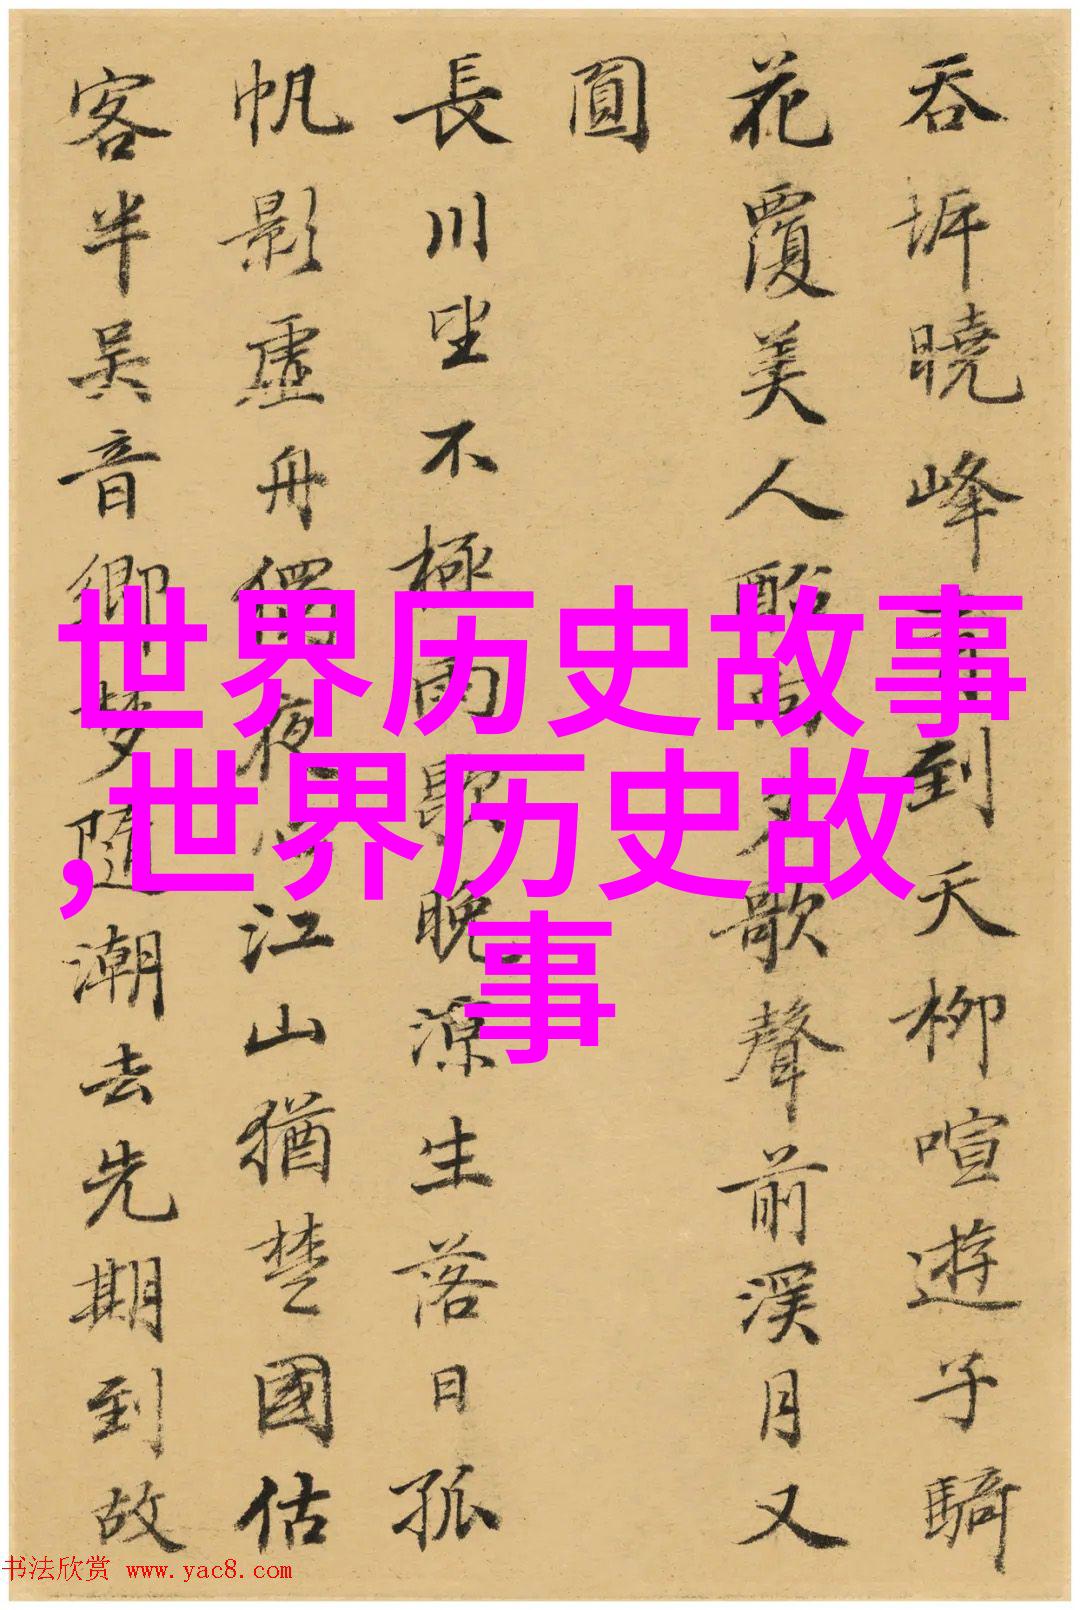 吞坼曉峰青到天柳喧遊子騎
花覆美人酣歌聲前溪月又
圓
長川坐不極雨歇晚涼生落日孤
帆影虛舟偶夜江山猶楚國估
客半吳音鄉夢隨潮去先期到故
世界历史故事
,世界历史故
事
书法欣赏 www.yac8.com